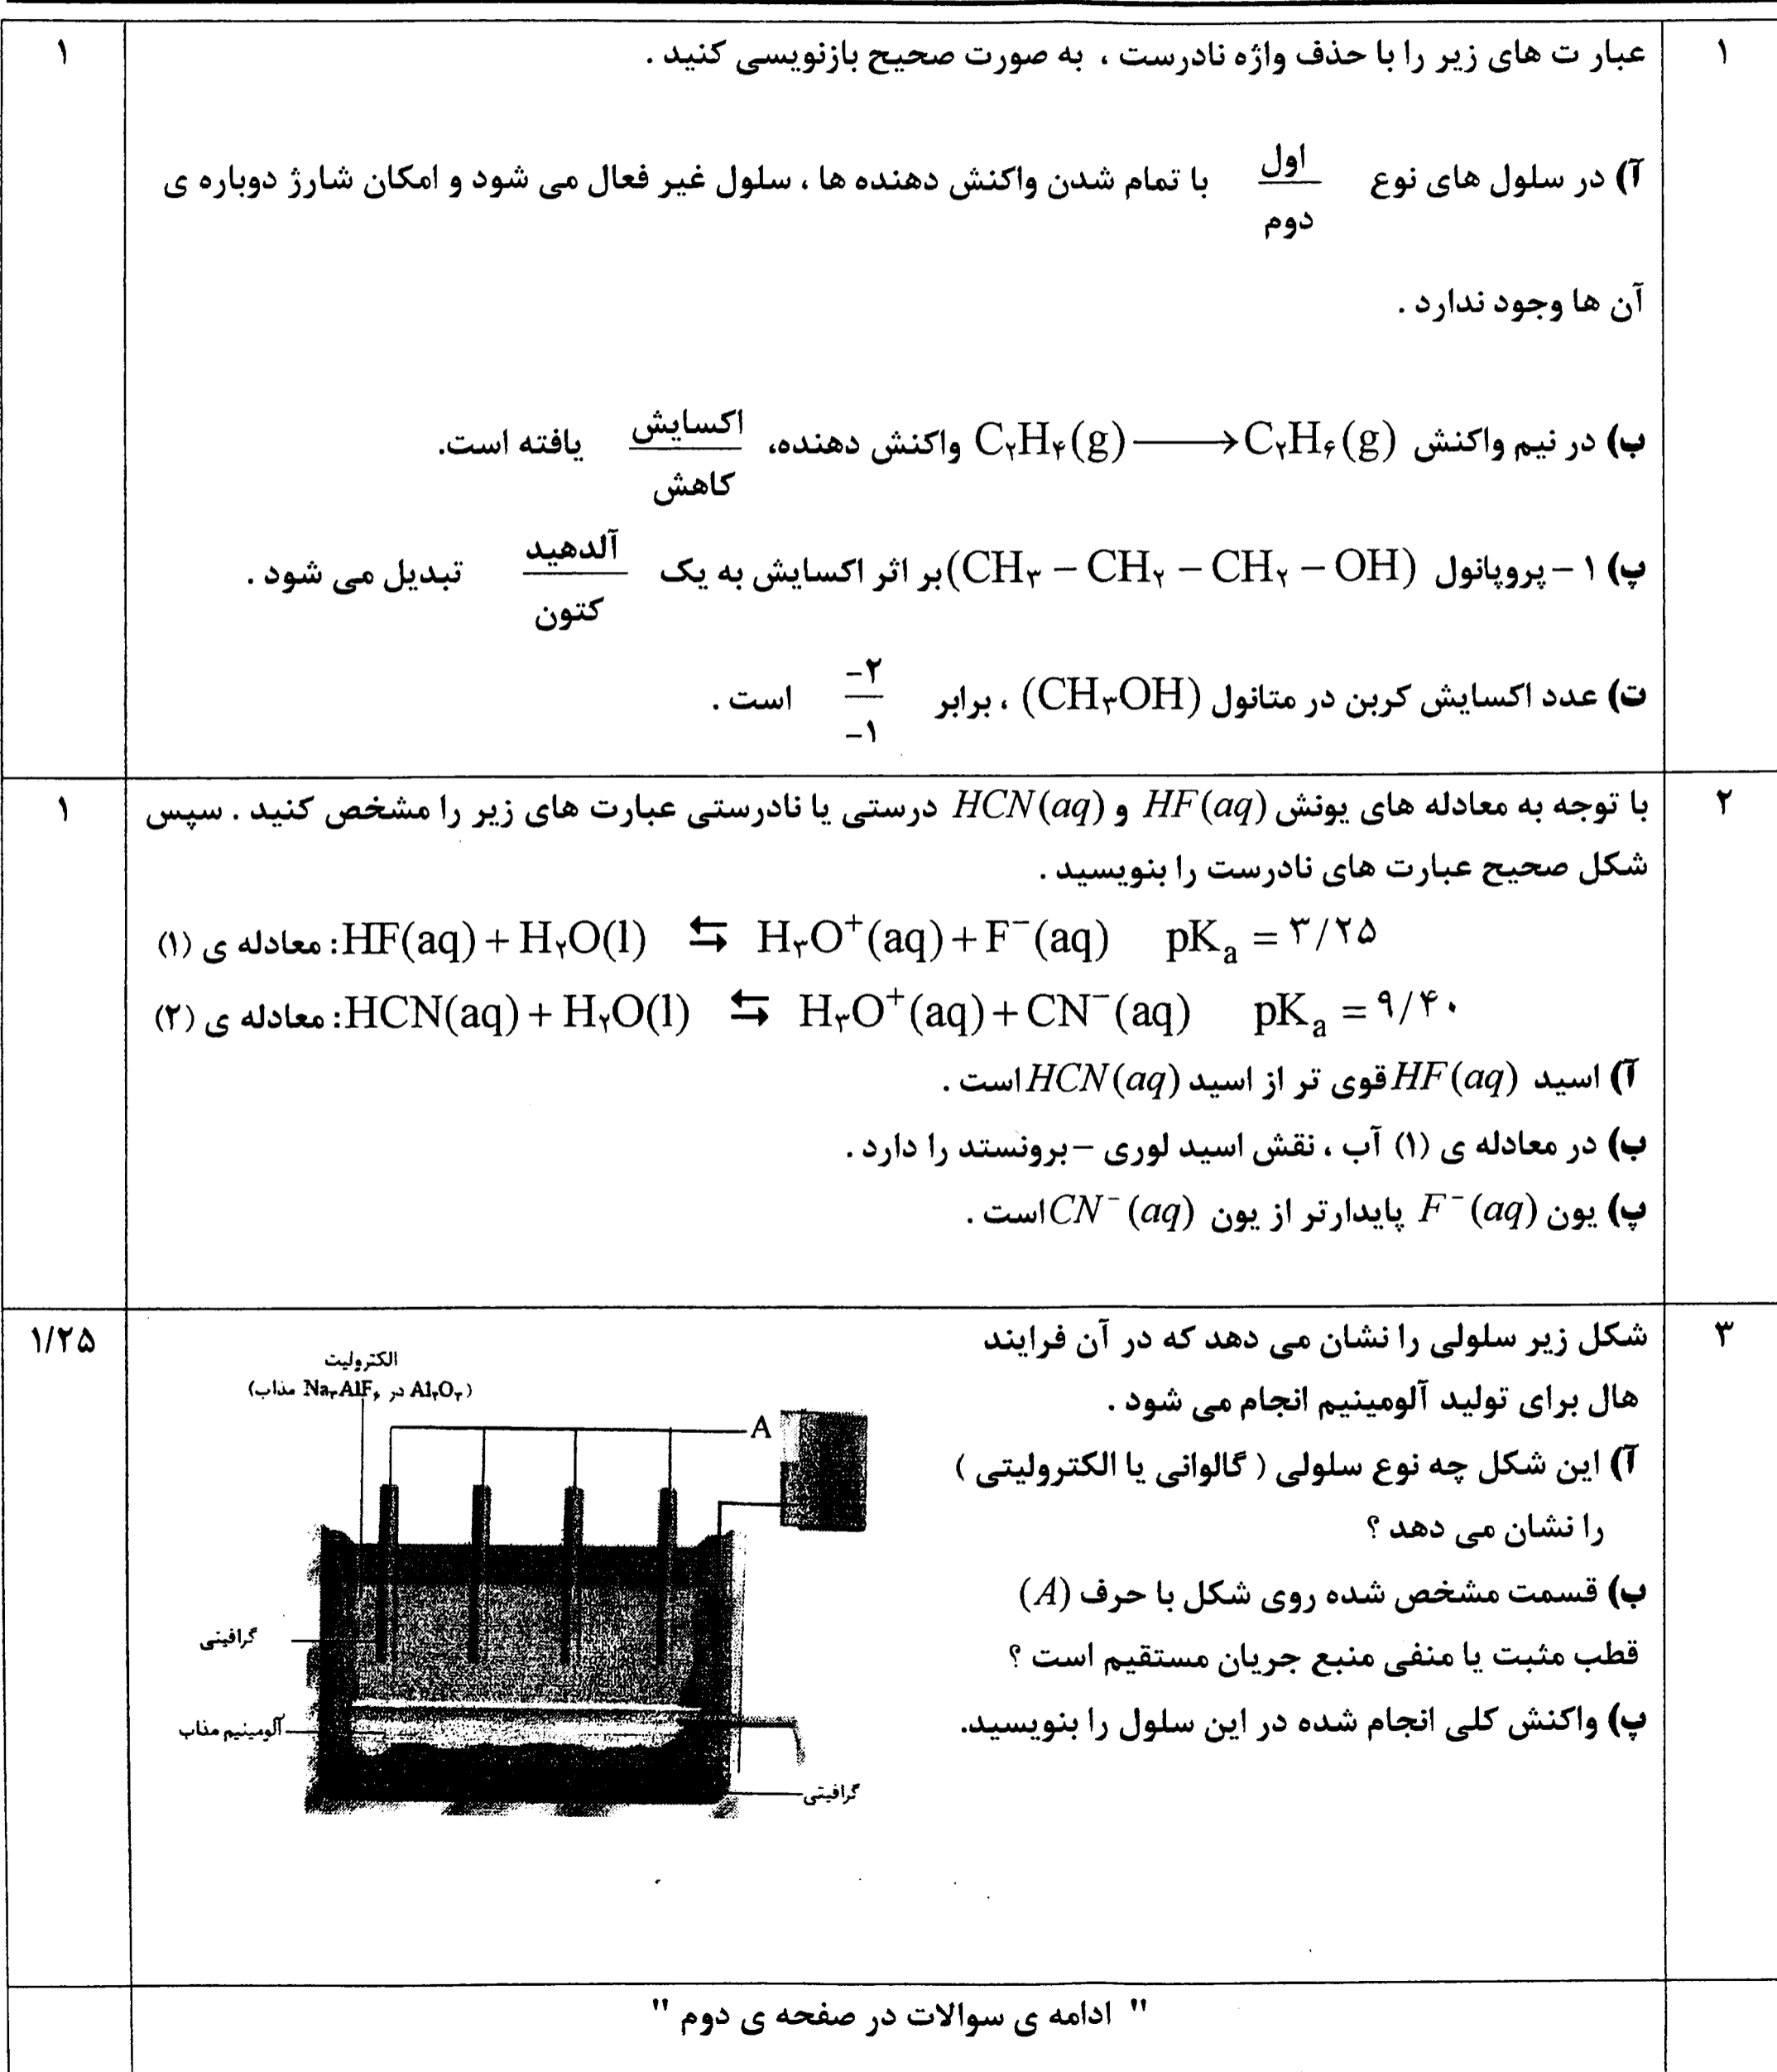 ۱
عبار ت های زیر را با حذف واژه نادرست ، به صورت صحیح بازنویسی کنید .
۱
آ) در سلول های نوع اول / دوم با تمام شدن واکنش دهنده ها ، سلول غیر فعال می شود و امکان شارژ دوباره ی
آن ها وجود ندارد .
ب) در نیم واکنش C۲H۴(g) ⟶ C۲H۶(g) واکنش دهنده، اکسایش / کاهش یافته است.
پ) ۱ – پروپانول (CH۳ – CH۲ – CH۲ – OH) بر اثر اکسایش به یک آلدهید / کتون تبدیل می شود .
ت) عدد اکسایش کربن در متانول (CH۳OH) ، برابر –۲ / –۱ است .
۲
با توجه به معادله های یونش HF(aq) و HCN(aq) درستی یا نادرستی عبارت های زیر را مشخص کنید . سپس
۱
شکل صحیح عبارت های نادرست را بنویسید .
معادله ی (۱) : HF(aq) + H۲O(l) ⇆ H۳O⁺(aq) + F⁻(aq) pKa = ۳/۲۵
معادله ی (۲) : HCN(aq) + H۲O(l) ⇆ H۳O⁺(aq) + CN⁻(aq) pKa = ۹/۴۰
آ) اسید HF(aq) قوی تر از اسید HCN(aq) است .
ب) در معادله ی (۱) آب ، نقش اسید لوری – برونستد را دارد .
پ) یون F⁻(aq) پایدارتر از یون CN⁻(aq) است .
۳
شکل زیر سلولی را نشان می دهد که در آن فرایند
۱/۲۵
هال برای تولید آلومینیم انجام می شود .
آ) این شکل چه نوع سلولی ( گالوانی یا الکترولیتی )
را نشان می دهد ؟
ب) قسمت مشخص شده روی شکل با حرف (A)
قطب مثبت یا منفی منبع جریان مستقیم است ؟
پ) واکنش کلی انجام شده در این سلول را بنویسید.
الکترولیت
(Al۲O۳ در Na۳AlF۶ مذاب)
A
گرافیتی
آلومینیم مذاب
گرافیتی
" ادامه ی سوالات در صفحه ی دوم "